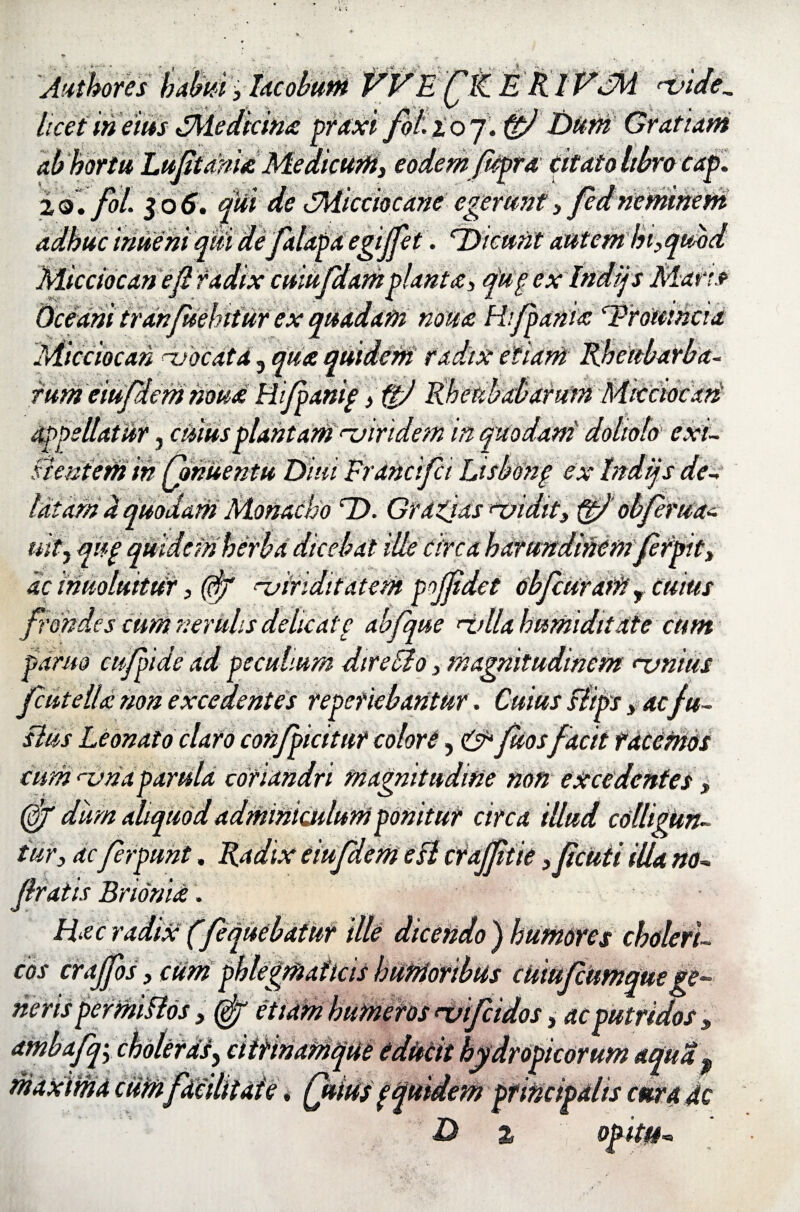 Authores habui, Iacobum VVECKERIVM vide-
licet in eius Medicinæ praxi fol. 207. & Dum Gratiam
ab hortu Lusitaniæ Medicum, eodem supra citato libro cap.
20. fol. 306. qui de Micciocane egerunt, sed neminem
adhuc inueni qui de salapa egisset. Dicunt autem hi, quod
Micciocan est radix cuiusdam plantæ, quę ex Indijs Maris
Oceani transuehitur ex quadam nouæ Hispaniæ Prouincia
Micciocan vocata, quæ quidem radix etiam Rheubarba-
rum eiusdem nouæ Hispanię, & Rheubabarum Micciocan
appellatur, cuius plantam viridem in quodam doliolo exi-
stentem in Conuentu Diui Francisci Lisbonę ex Indijs de-
latam à quodam Monacho D. Grazias vidit, & obserua-
uit, quę quidem herba dicebat ille circa harundinem serpit,
ac inuoluitur, & viriditatem possidet obscuram, cuius
frondes cum neruulis delicatę absque vlla humiditate cum
paruo cuspide ad peculium directo, magnitudinem vnius
scutellæ non excedentes reperiebantur. Cuius stips, ac fu-
stus Leonato claro conspicitur colore, & suos facit racemos
cum vna parula coriandri magnitudine non excedentes,
& dum aliquod adminiculum ponitur circa illud colligun-
tur, ac serpunt. Radix eiusdem est crassitie, sicuti illa no-
stratis Brioniæ.
Hæc radix (sequebatur ille dicendo) humores choleri-
cos crassos, cum phlegmaticis humoribus cuiuscumque ge-
neris permistos, & etiam humeros viscidos, ac putridos,
ambasq; choleras, citrinamque educit hydropicorum aquã,
maxima cum facilitate. Cuius ęquidem principalis cura ac
D 2 opitu-